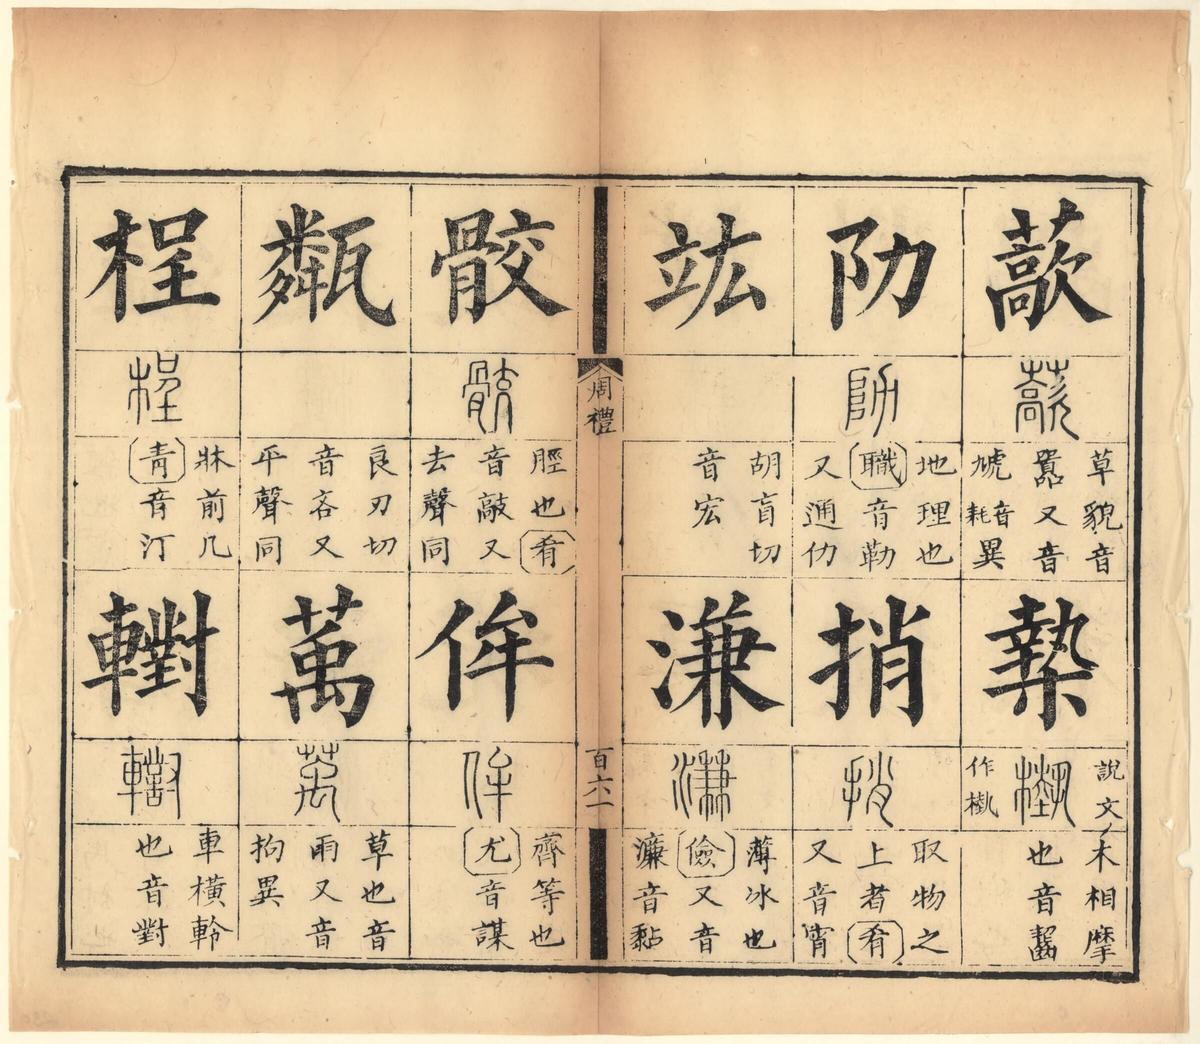 藃
藃
草貌音
嚻又音
虓音耗異
槷
槸
說文
作槸
木相摩
也音齧
阞
阞
地理也
職音勒
又通仂
捎
捎
取物之
上者肴
又音宵
竑
胡盲切
音宏
溓
溓
薄冰也
儉又音
濂音黏
周禮
百六一
骹
骹
脛也肴
音敲又
去聲同
侔
侔
齊等也
尤音謀
甐
良刃切
音吝又
平聲同
萭
萭
草也音
雨又音
拘異
桯
桯
牀前几
青音汀
轛
轛
車橫軨
也音對